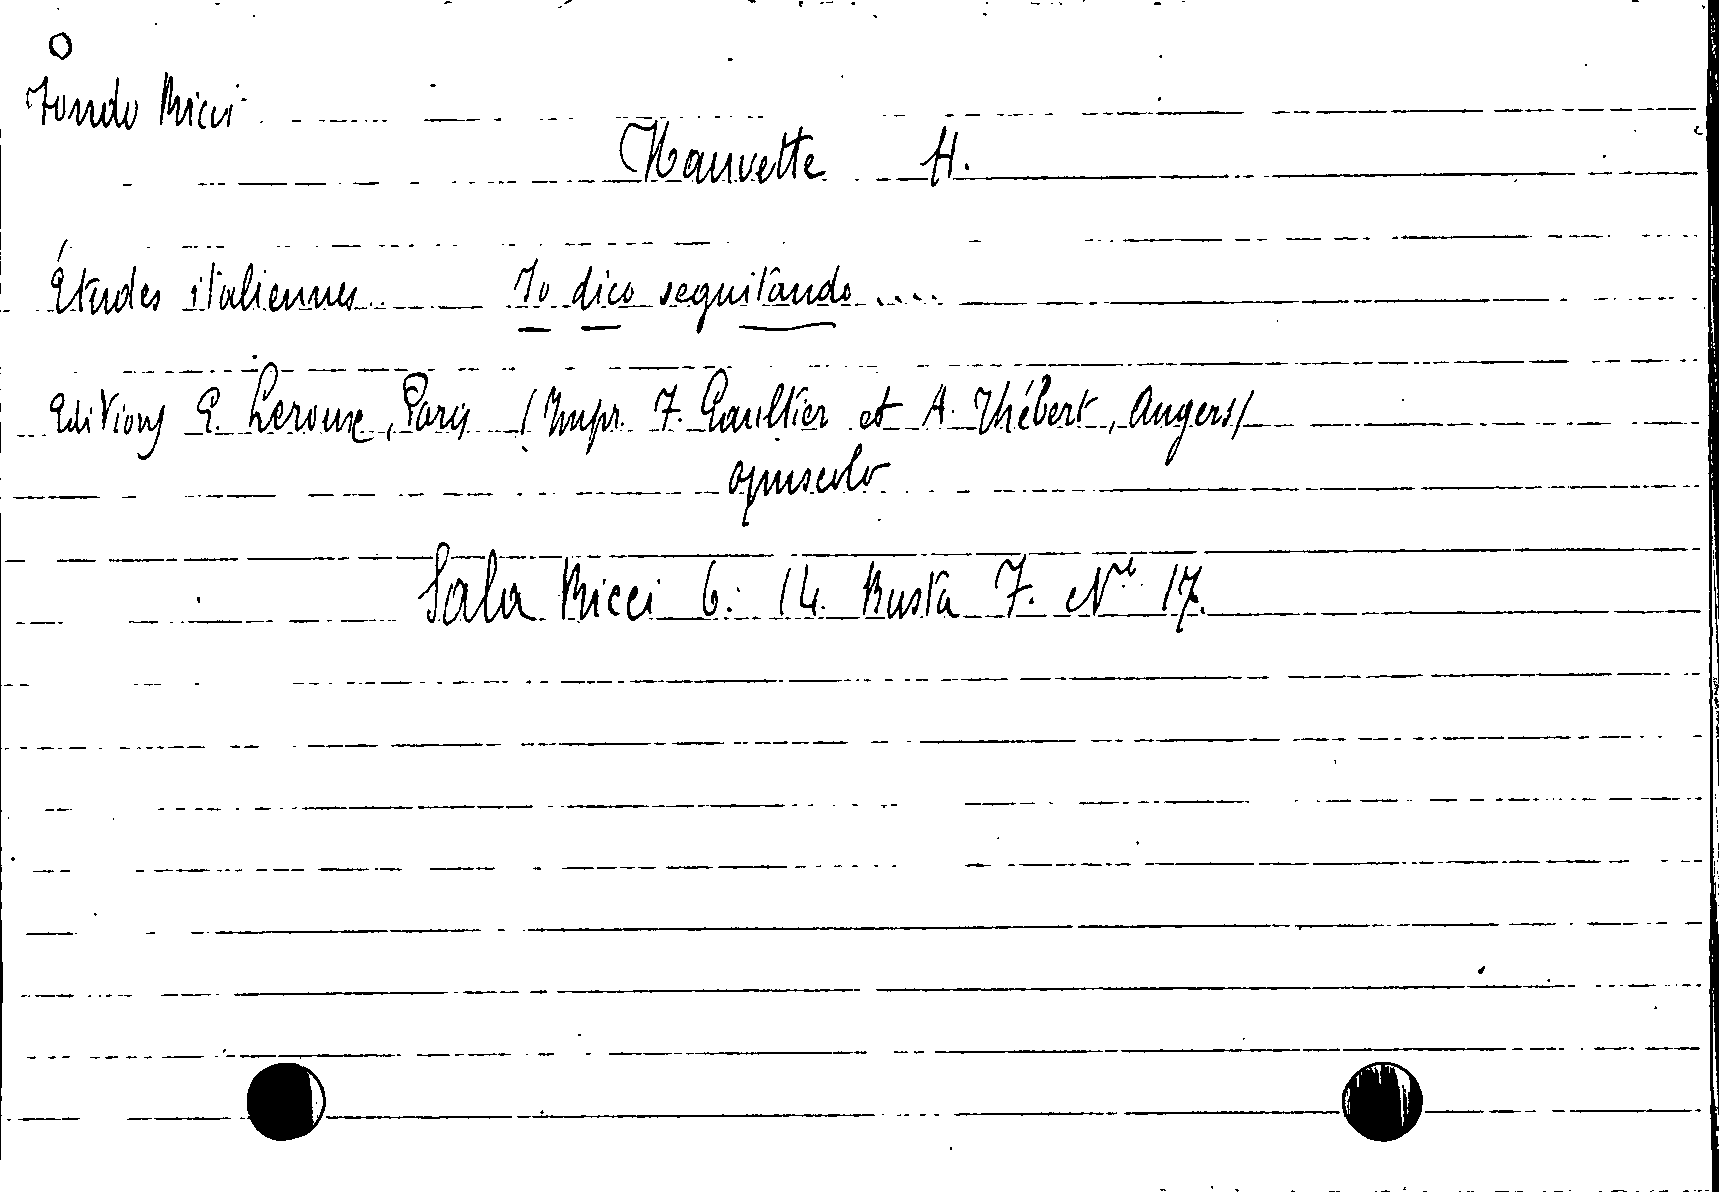 Fondo Ricci
Hauvette H.
Études italiennes.. Io dico seguitando ....
Editions E. Leroux, Paris (Impr. F. Gaultier et A. Thébert, Angers)
opuscolo
Sala Ricci 6. 14. Busta 7. N° 17.